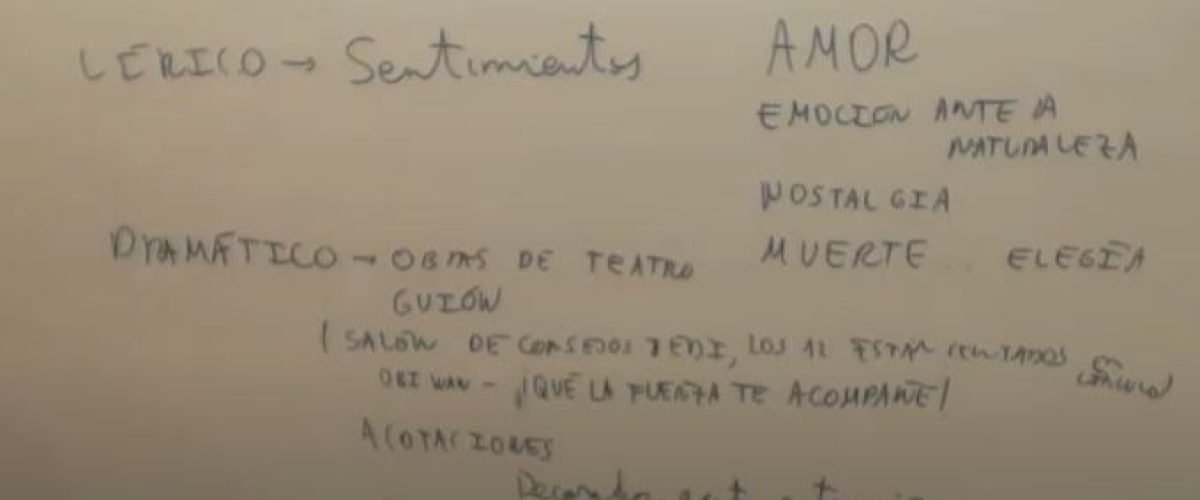 LÍRICO → Sentimientos
AMOR
EMOCIÓN ANTE LA
NATURALEZA
NOSTALGIA
MUERTE .. ELEGÍA
DRAMÁTICO → OBRAS DE TEATRO
GUIÓN
(SALÓN DE CONSEJOS JEDI, LOS 12 ESTÁN SENTADOS EN
OBI WAN - ¡QUÉ LA FUERZA TE ACOMPAÑE!
ACOTACIONES